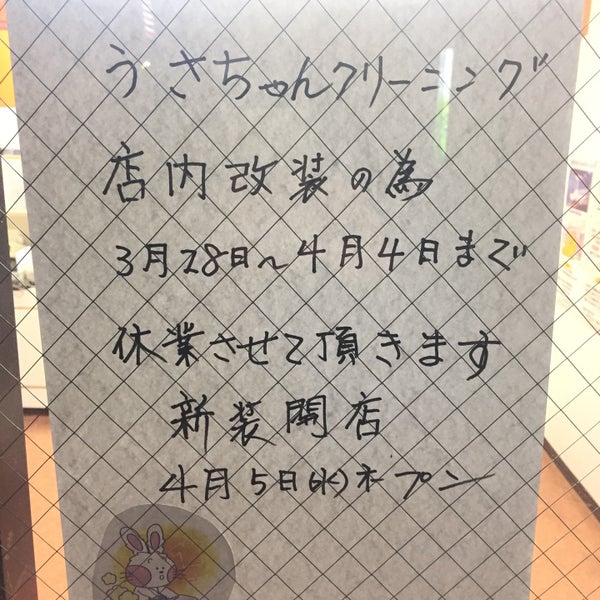 うさちゃんクリーニング
店内改装の為
3月28日～4月4日まで
休業させて頂きます
新装開店
4月5日(水)オープン